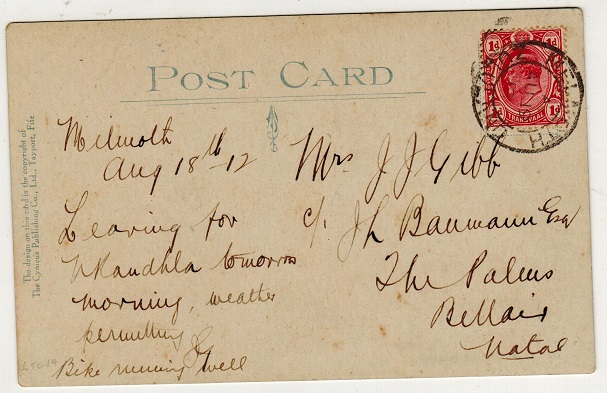 POST CARD
Melmoth
Aug 18th 12
Leaving for
Nkandhla tomorrow
morning, weather
permitting
J
Bike running well
Mrs J J Gibb
c/o J h Baumann Esq
The Palms
Bellair
Natal
1d 1d
TRANSVAAL
1d
The design on this card is the copyright of
The Cynicus Publishing Co., Ltd., Tayport, Fife